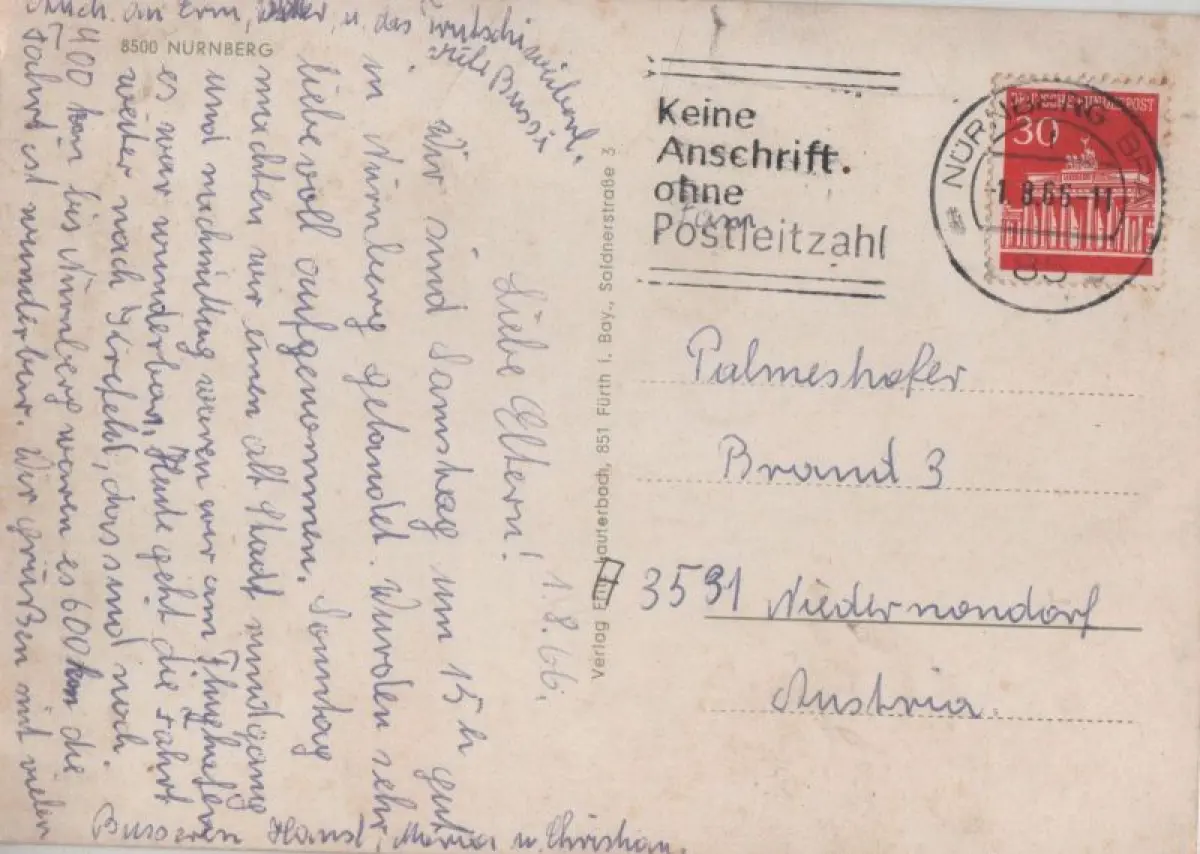 8500 NÜRNBERG
1.8.66.
Liebe Eltern!
Wir sind Samstag um 15 h gut
in Nürnberg gelandet. Wurden sehr
liebevoll aufgenommen. Sonntag
machten wir einen alt Stadt rundgang
und nachmittag waren wir am Flughafen
es war wunderbar. Heute geht die Fahrt
weiter nach Krefeld, das sind noch
400 km bis Nürnberg waren es 600 km die
Fahrt ist wunderbar. Wir grüßen mit vielen
Busseren Hansl, Maria u. Christian.
Auch an u. das
Viele Bussi
Verlag Lauterbach, 851 Fürth i. Bay., Soldnerstraße 3
Keine
Anschrift.
ohne
Postleitzahl
Fam
NÜRNBERG BRA
1.8.66-11
85
DEUTSCHE BUNDESPOST
30
Palmeshofer
Brand 3
3531 Niedernondorf
Austria.